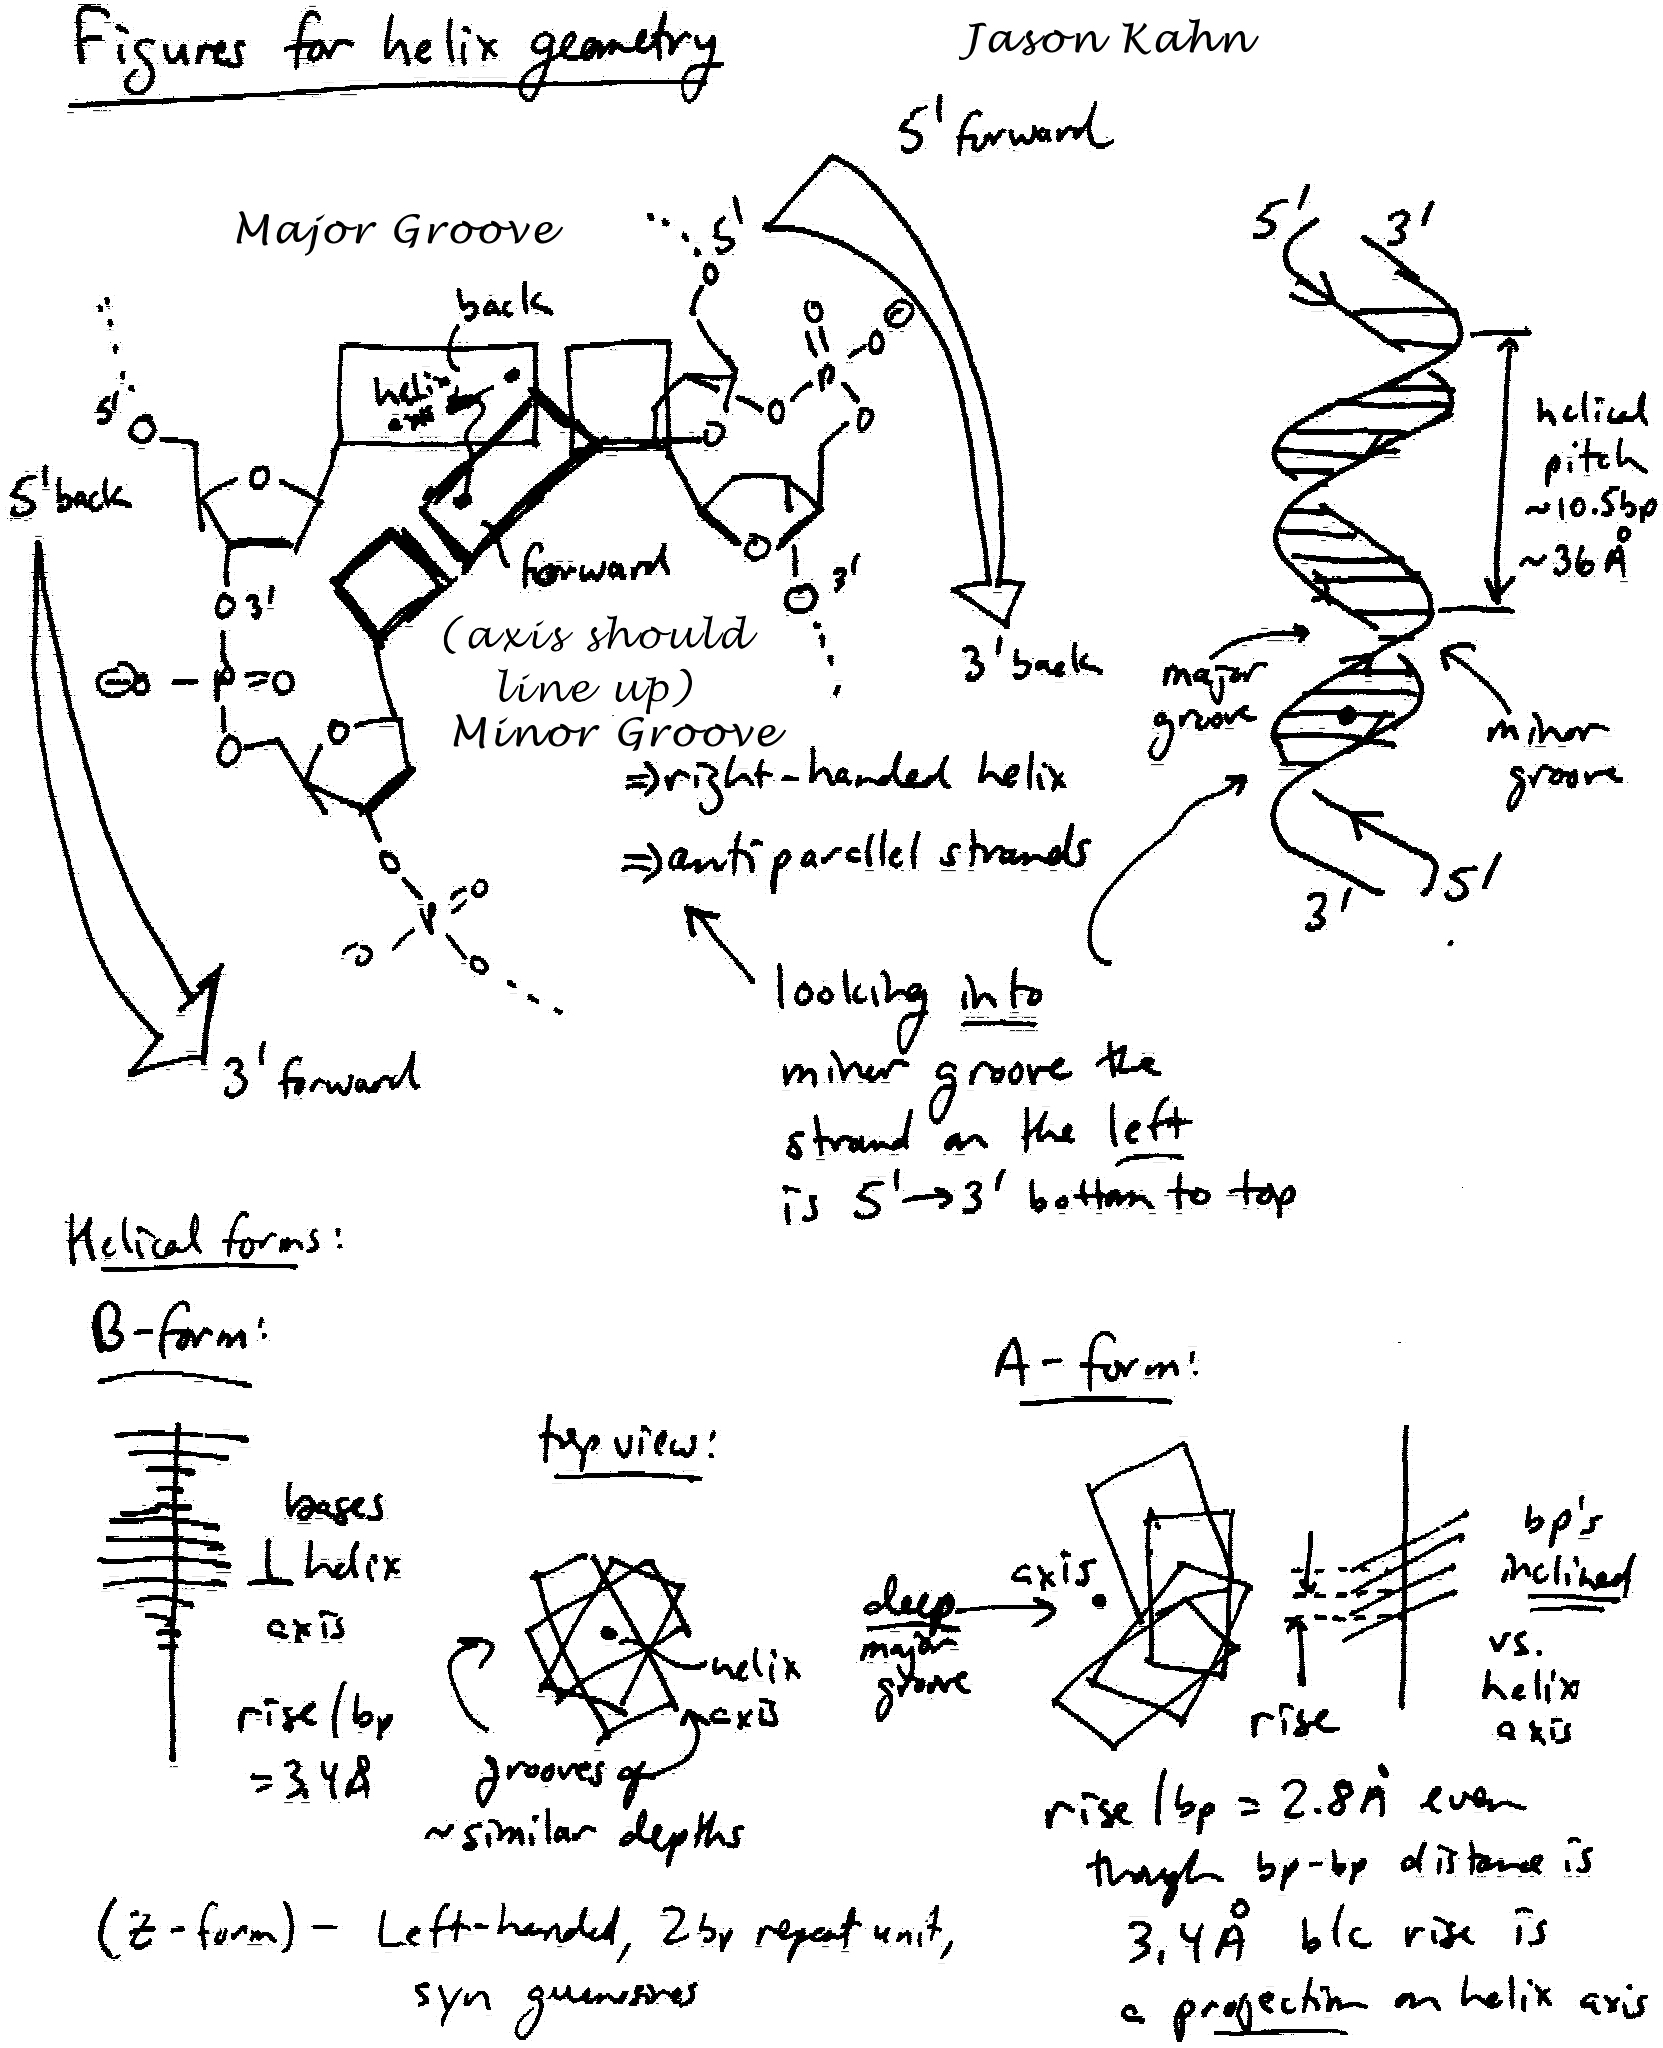 Figures for helix geometry
Jason Kahn
5' forward
Major Groove
5'
O
back
helix
axis
O
O
⊖
P
O
O
O
5'
O
O
5' back
O
O
3'
O
forward
(axis should
line up)
Minor Groove
3' back
O 3'
⊖O - P = O
O
O
⇒ right-handed helix
⇒ antiparallel strands
O
P
=O
O
O
3' forward
looking into
minor groove the
strand on the left
is 5' → 3' bottom to top
5'
3'
helical
pitch
~10.5bp
~36 Å
major
groove
minor
groove
3'
5'
Helical forms:
B-form:
bases
⊥ helix
axis
rise/bp
= 3.4Å
top view:
helix
axis
grooves of
~similar depths
A-form:
axis
deep
major
groove
rise
bp's
inclined
vs.
helix
axis
rise/bp = 2.8Å even
though bp-bp distance is
3.4Å b/c rise is
a projection on helix axis
(Z-form) - Left-handed, 2bp repeat unit,
syn guanosines